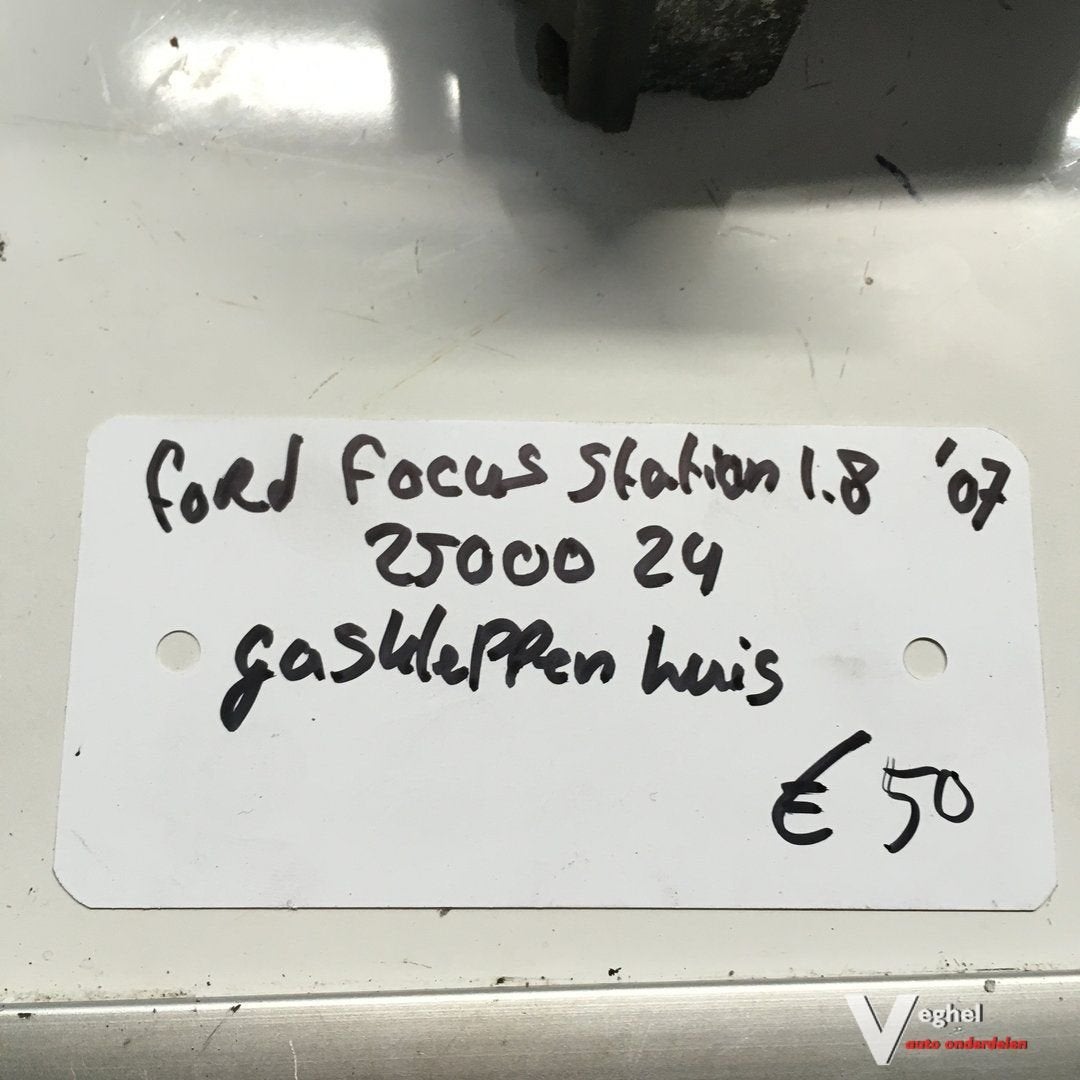 Ford Focus Station 1.8 '07
25000 24
gaskleppen huis
€ 50
Veghel
auto onderdelen